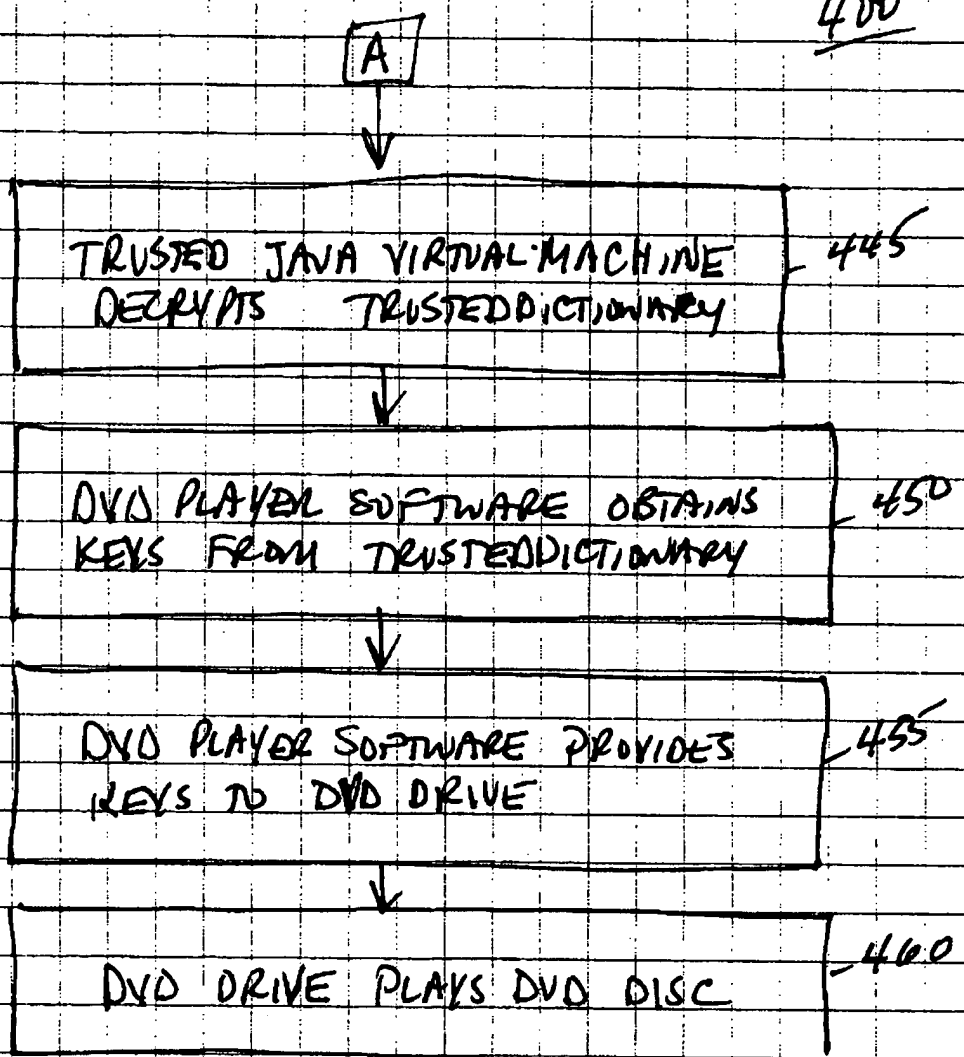 400
A
TRUSTED JAVA VIRTUAL MACHINE
DECRYPTS TRUSTEDDICTIONARY
445
DVD PLAYER SOFTWARE OBTAINS
KEYS FROM TRUSTEDDICTIONARY
450
DVD PLAYER SOFTWARE PROVIDES
KEYS TO DVD DRIVE
455
DVD DRIVE PLAYS DVD DISC
460